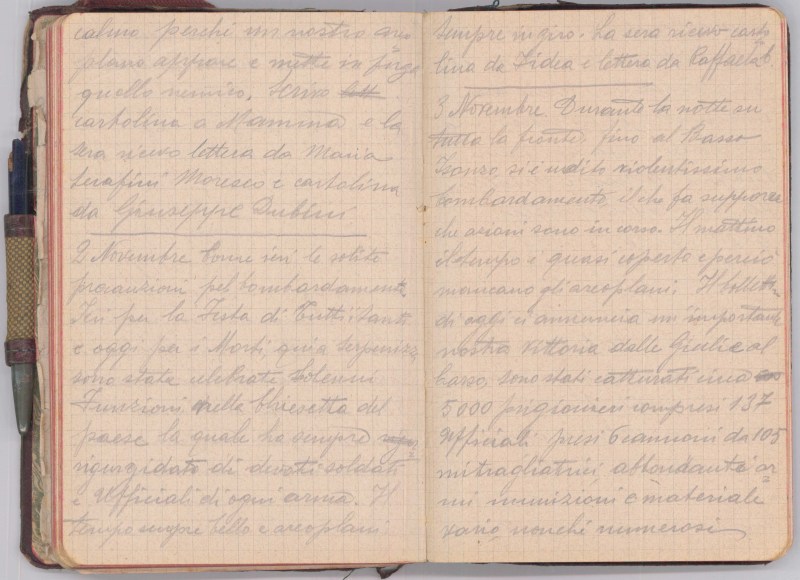 calmo perchè un nostro areo
plano appare e mette in fuga
quello nemico. Scrivo lett
cartolina a Mamma e la
sera ricevo lettera da Maria
Serafini Moresco e cartolina
da Giuseppe Dubini
2 Novembre Come ieri le solite
precauzioni pel bombardamento
Ieri per la Festa di Tutti i Santi
e oggi per i Morti qui a Serpenizza
sono state celebrate solenni
Funzioni nella Chiesetta del
paese la quale ha sempre
rigurgidato di devoti soldati
e Ufficiali di ogni arma. Il
tempo sempre bello e areoplani
sempre in giro. La sera ricevo carto
lina da Fidea e lettera da Raffaela B.
3 Novembre. Durante la notte su
tutta la fronte, fino al Basso
Isonzo, si è udito violentissimo
bombardamento, il che fa supporre
che azioni sono in corso. Il mattino
il tempo è quasi coperto e perciò
mancano gli areoplani. Il bolletti=
di oggi ci annuncia un importante
nostra vittoria dalle Giulie al
Carso, sono stati catturati circa
5000 prigionieri compresi 137
Ufficiali presi 6 cannoni da 105
mitragliatrici abbondante ar=
mi munizioni e materiale
vario, nonchè numerosi